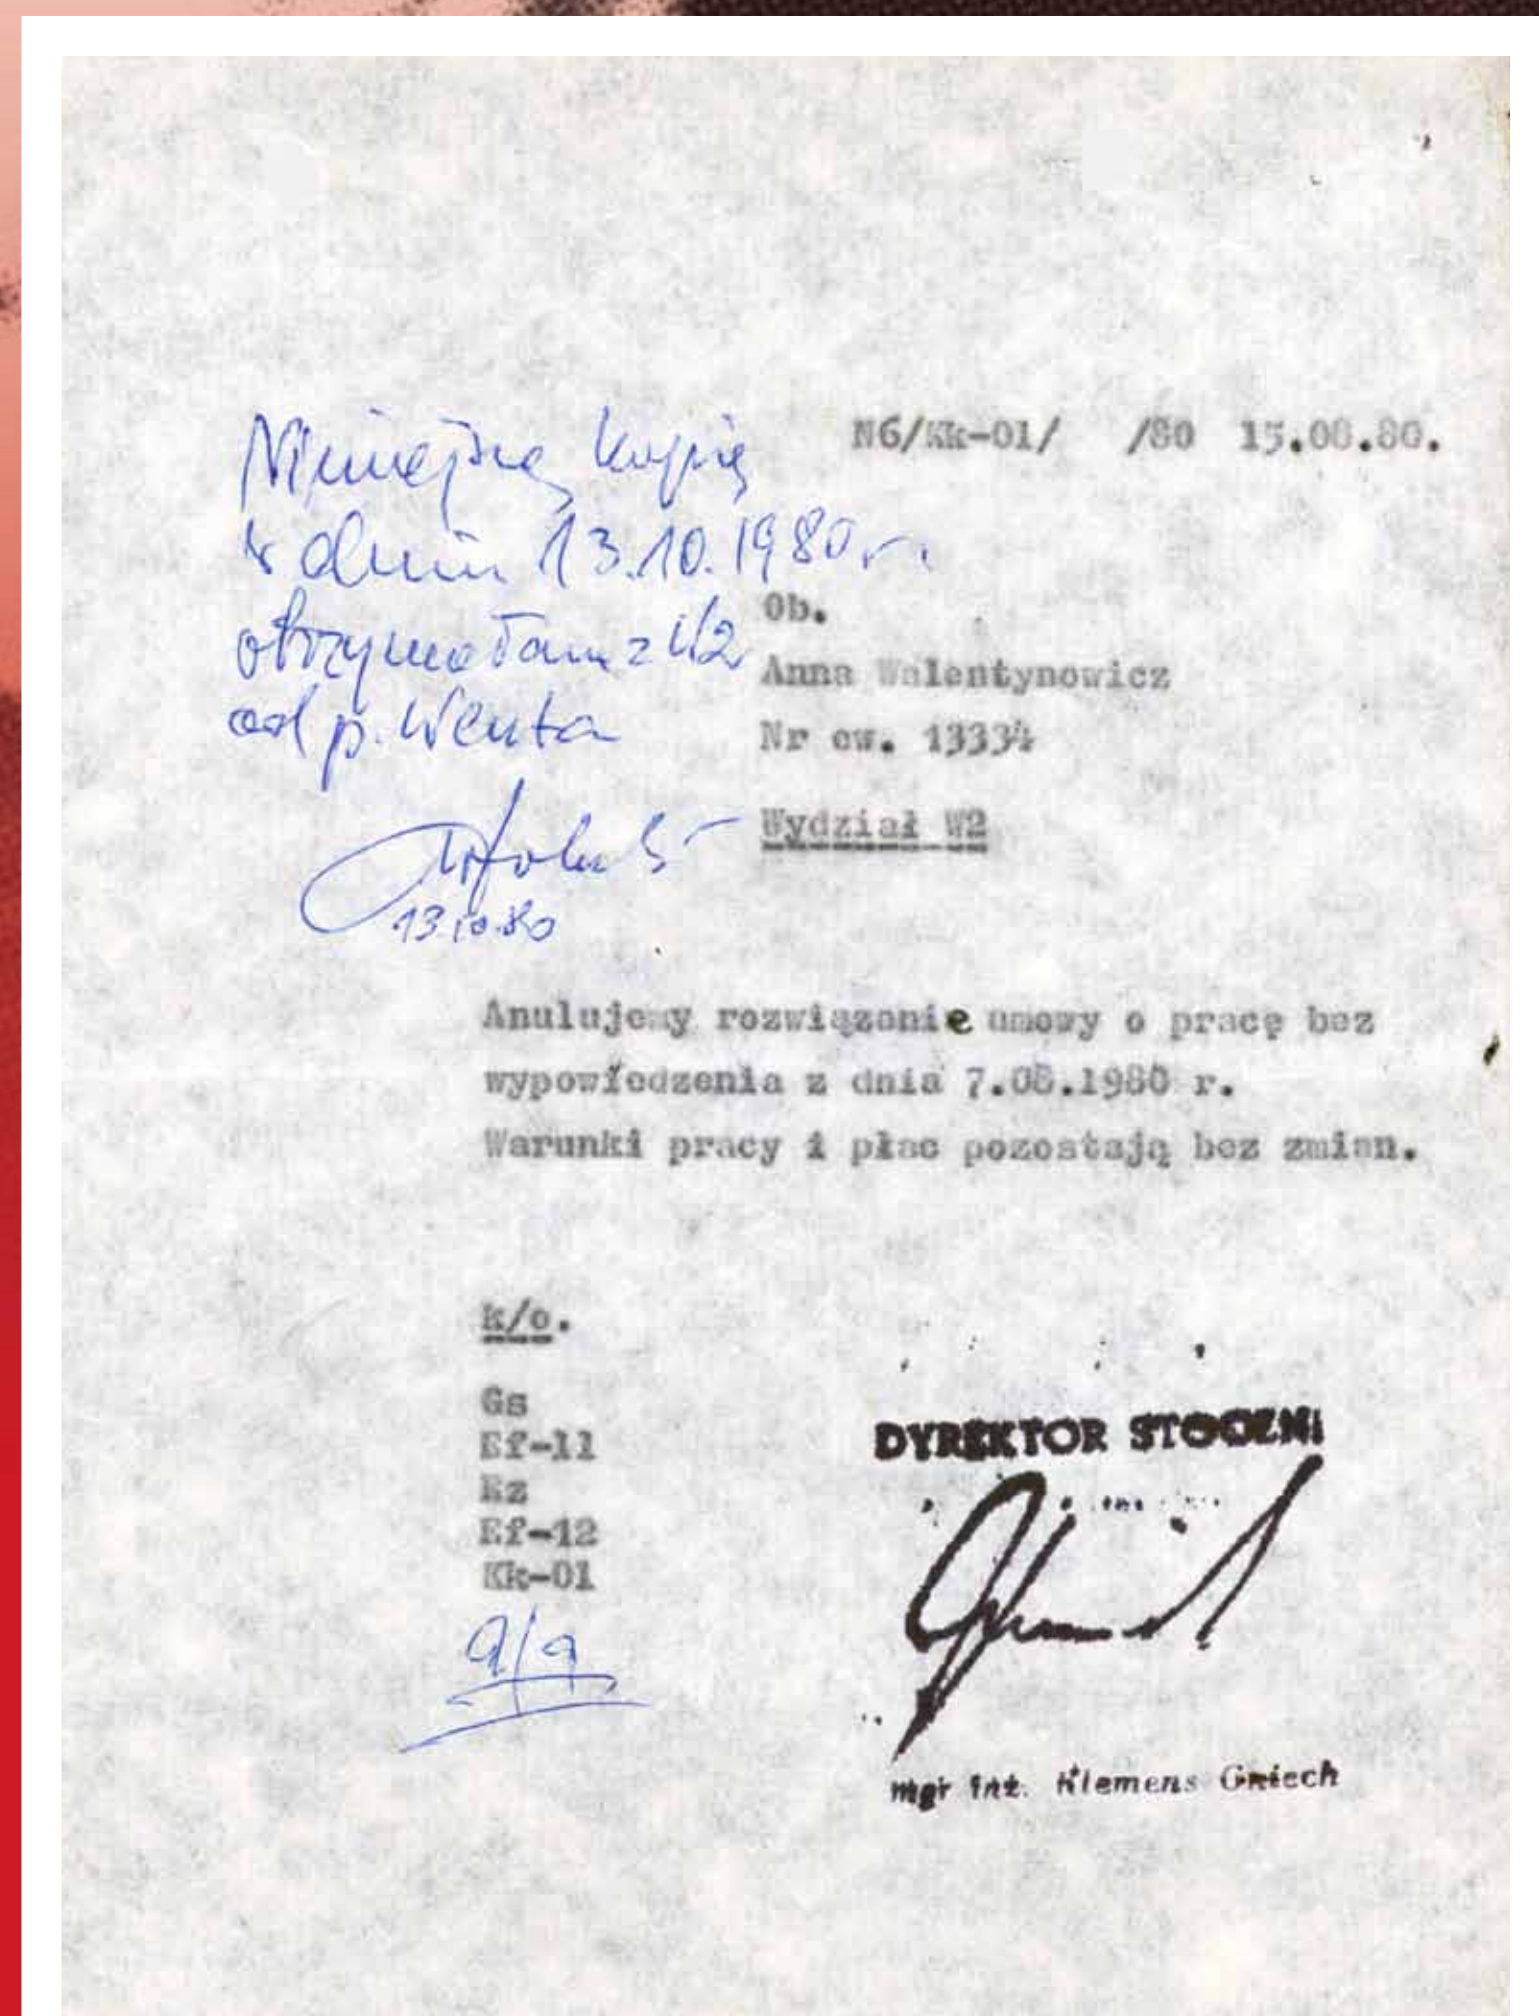 N6/Kk-01/ /80 15.08.80.
Niniejszą kopię
w dniu 13.10.1980 r.
otrzymałam z W2
od p. Wenta
13.10.80
Ob.
Anna Walentynowicz
Nr ew. 13334
Wydział W2
Anulujemy rozwiązanie umowy o pracę bez
wypowiedzenia z dnia 7.08.1980 r.
Warunki pracy i płac pozostają bez zmian.
k/o.
Gs
Ef-11
Ez
Ef-12
Kk-01
a/a
DYREKTOR STOCZNI
mgr inż. Klemens Gniech